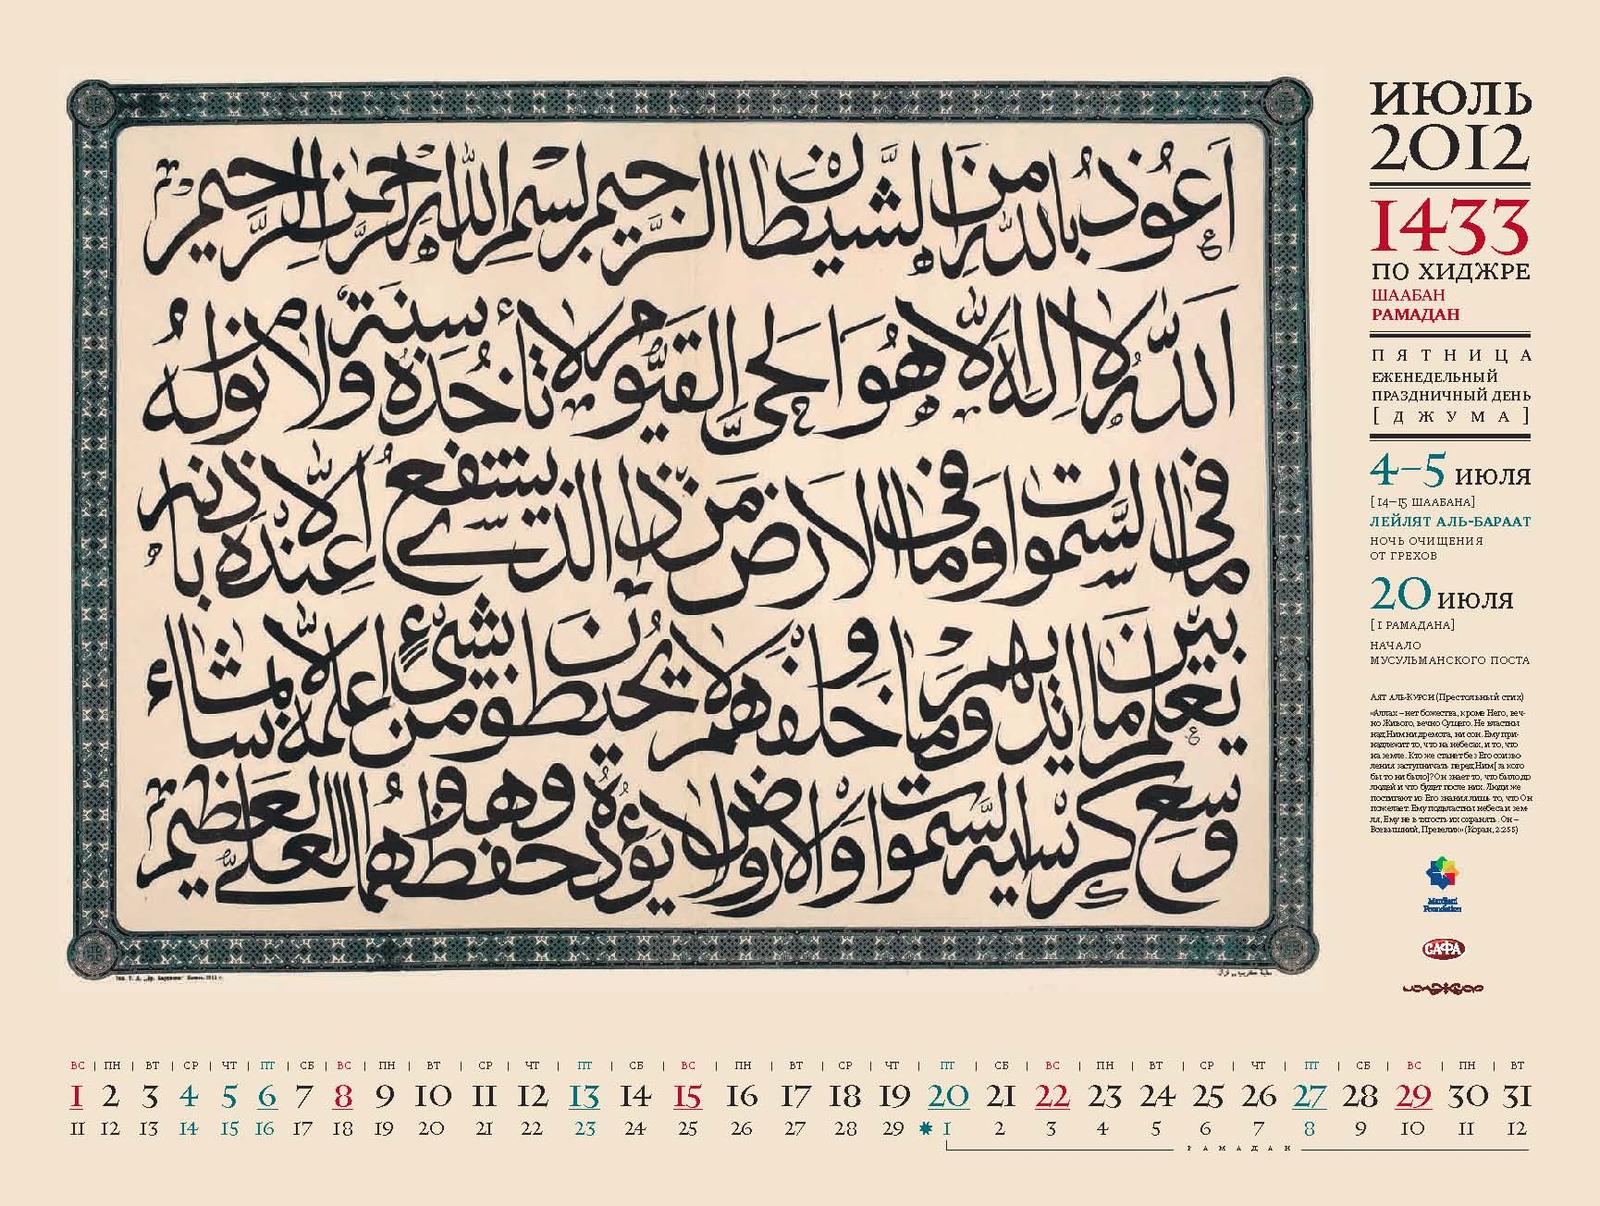 اعوذ بالله من الشيطان الرجيم بسم الله الرحمن الرحيم
الله لا اله الا هو الحى القيوم لا تأخذه سنة ولا نوم له
ما فى السموات وما فى الارض من ذا الذى يشفع عنده الا باذنه
يعلم ما بين ايديهم وما خلفهم ولا يحيطون بشئ من علمه الا بما شاء
وسع كرسيه السموات والارض ولا يؤده حفظهما وهو العلى العظيم
ИЮЛЬ
2012
1433
ПО ХИДЖРЕ
ШААБАН
РАМАДАН
ПЯТНИЦА
ЕЖЕНЕДЕЛЬНЫЙ
ПРАЗДНИЧНЫЙ ДЕНЬ
[ДЖУМА]
4–5 ИЮЛЯ
[14–15 ШААБАНА]
ЛЕЙЛЯТ АЛЬ-БАРААТ
НОЧЬ ОЧИЩЕНИЯ
ОТ ГРЕХОВ
20 ИЮЛЯ
[1 РАМАДАНА]
НАЧАЛО
МУСУЛЬМАНСКОГО ПОСТА
АЯТ АЛЬ-КУРСИ (Престольный стих)
«Аллах – нет божества, кроме Него, веч-
но Живого, вечно Сущего. Не властны
над Ним ни дремота, ни сон. Ему при-
надлежит то, что на небесах, и то, что
на земле. Кто же станет без Его соизво-
ления заступничать перед Ним [за кого
бы то ни было]? Он знает то, что было до
людей и что будет после них. Люди же
постигают из Его знания лишь то, что Он
пожелает. Ему подвластны небеса и зем-
ля, Ему не в тягость их охранять. Он –
Всевышний, Превелик» (Коран, 2:255)
Mardjani
Foundation
САФА
ВС | ПН | ВТ | СР | ЧТ | ПТ | СБ | ВС | ПН | ВТ | СР | ЧТ | ПТ | СБ | ВС | ПН | ВТ | СР | ЧТ | ПТ | СБ | ВС | ПН | ВТ | СР | ЧТ | ПТ | СБ | ВС | ПН | ВТ
1 2 3 4 5 6 7 8 9 10 11 12 13 14 15 16 17 18 19 20 21 22 23 24 25 26 27 28 29 30 31
11 12 13 14 15 16 17 18 19 20 21 22 23 24 25 26 27 28 29 1 2 3 4 5 6 7 8 9 10 11 12
РАМАДАН